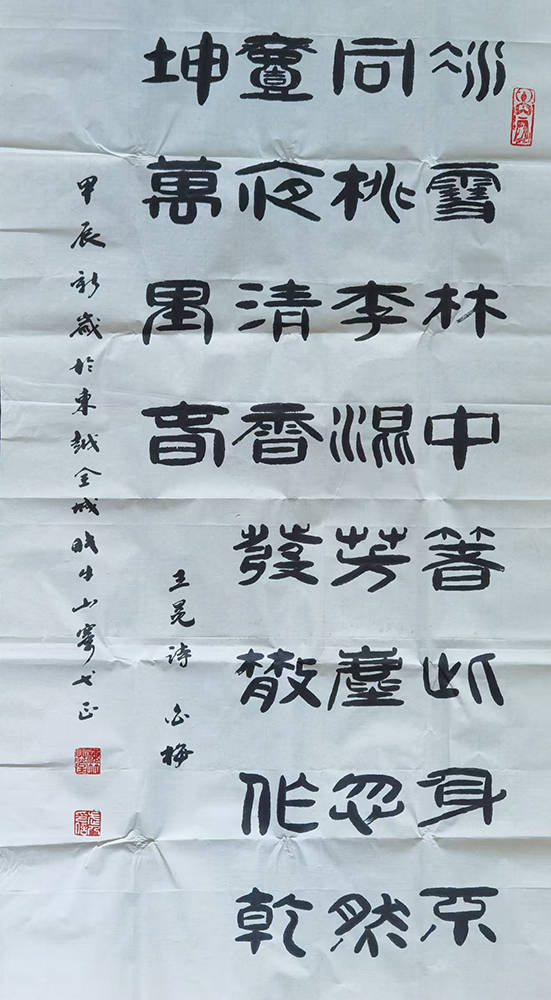 冰雪林中箸此身不
同桃李混芳塵忽然
壹夜清香發散作乾
坤萬里春
王冕詩 白梅
甲辰新歲於東越城眠牛山正